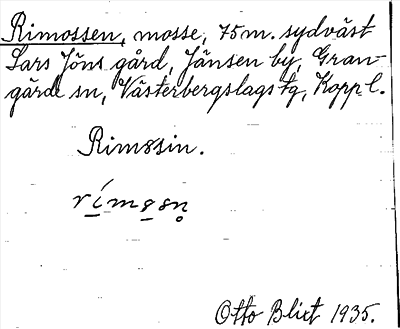 Rimossen, mosse, 75 m. sydväst
Lars Jöns gård, Jänsen by, Gran-
gärde sn, Västerbergslags tg, Kopp l.
Rimosin.
rímosn̥
Otto Blixt 1935.